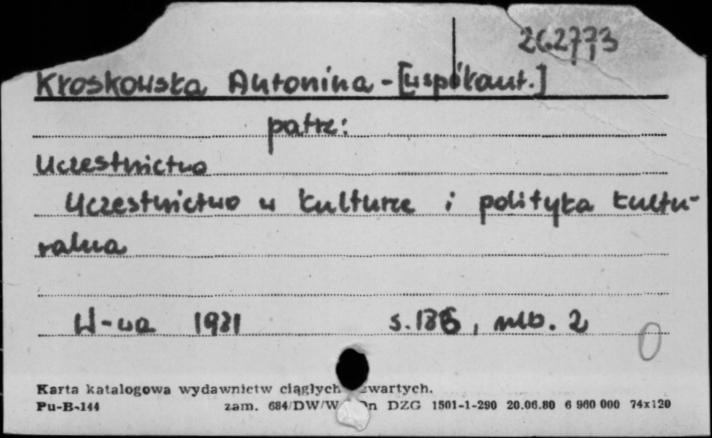 262773
Kłoskowska Antonina - [współaut.]
patrz:
Uczestnictwo
Uczestnictwo w kulturze i polityka kultu-
ralna
W-wa 1981 s. 186, nlb. 2
0
Karta katalogowa wydawnictw ciągłych
Pu-B-144 zam. 684/DW/W DZG 1501-1-290 20.06.80 6 960 000 74x120